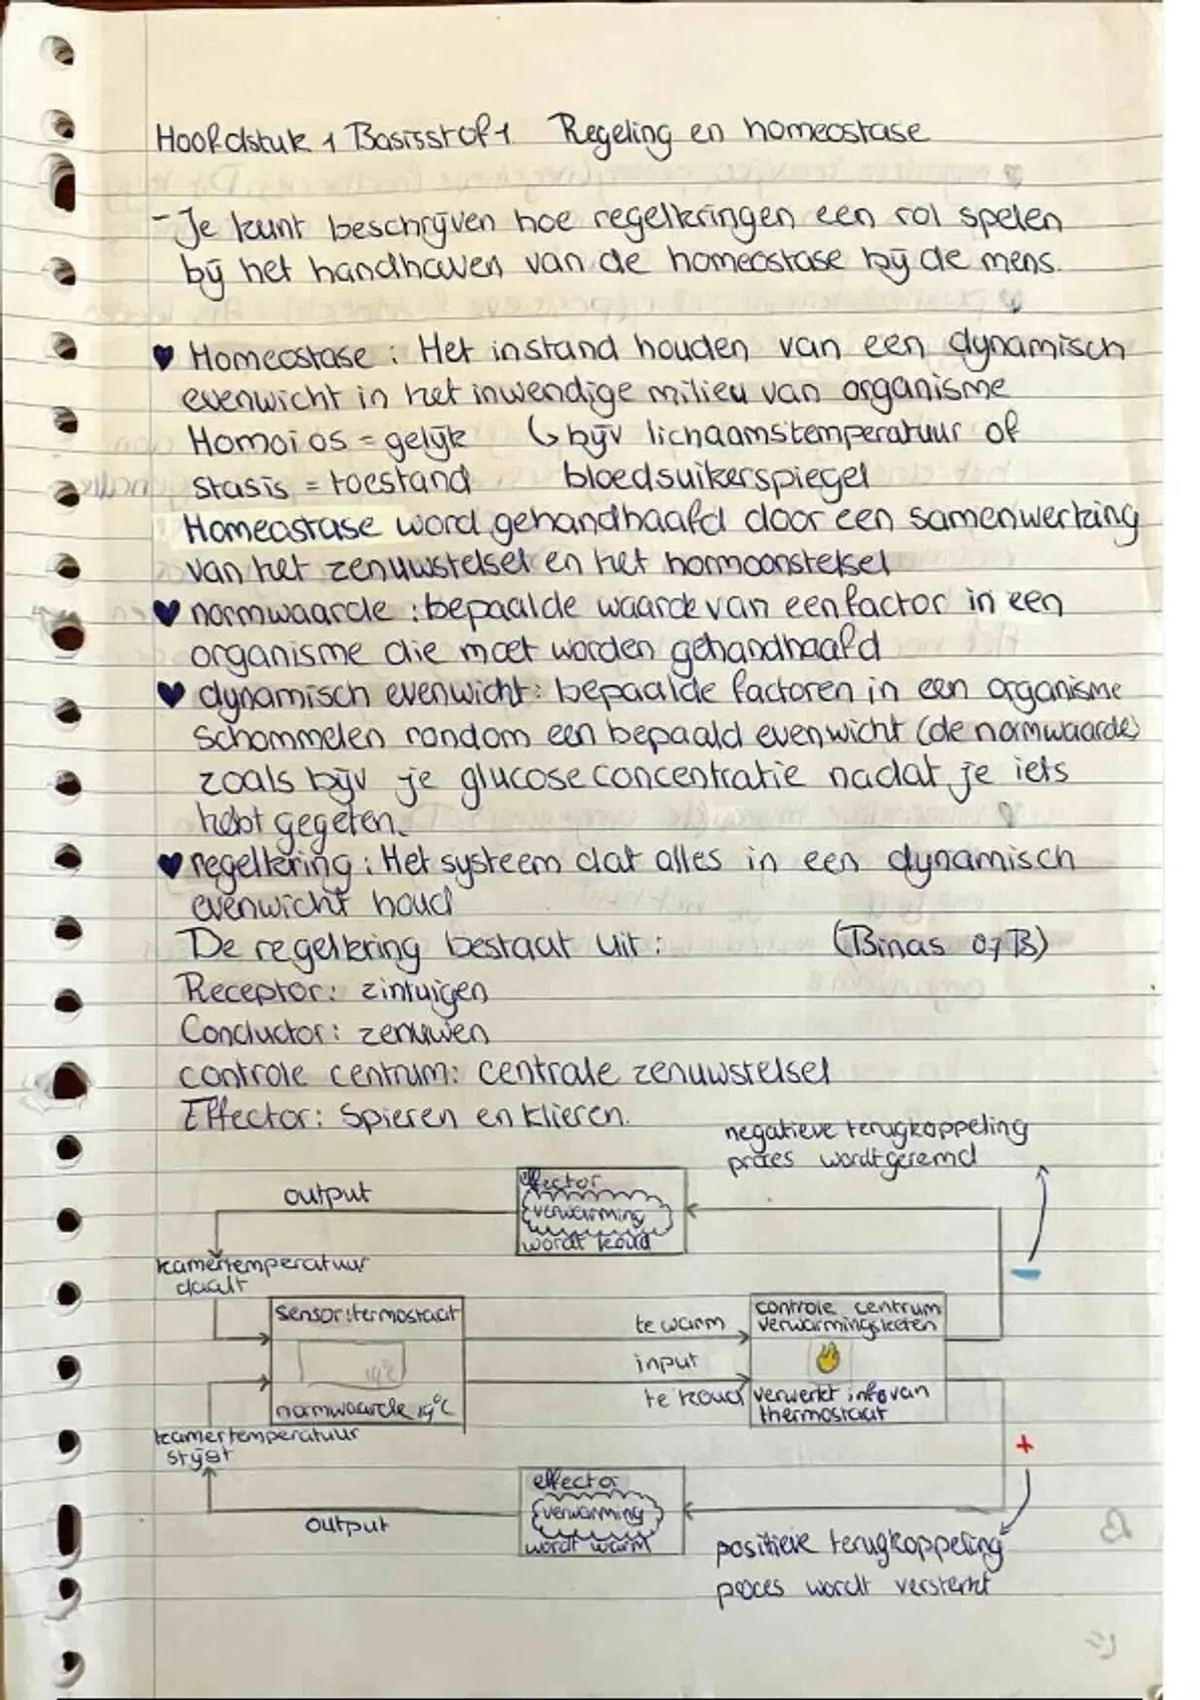 Hoofdstuk 1 Basisstof 1 Regeling en homeostase
- Je kunt beschrijven hoe regelkringen een rol spelen
bij het handhaven van de homeostase bij de mens.
♥ Homeostase : Het instand houden van een dynamisch
evenwicht in het inwendige milieu van organisme
Homoios = gelijk ↳ bijv lichaamstemperatuur of
stasis = toestand bloedsuikerspiegel
Homeostase word gehandhaafd door een samenwerking
van het zenuwstelsel en het hormoonstelsel
♥ normwaarde : bepaalde waarde van een factor in een
organisme die moet worden gehandhaafd
♥ dynamisch evenwicht: bepaalde factoren in een organisme
schommelen rondom een bepaald evenwicht (de normwaarde)
zoals bijv je glucoseconcentratie nadat je iets
hebt gegeten.
♥ regelkring : Het systeem dat alles in een dynamisch
evenwicht houd
De regelkring bestaat uit : (Binas 87B)
Receptor: zintuigen
Conductor: zenuwen
controle centrum: centrale zenuwstelsel
Effector: Spieren en klieren.
negatieve terugkoppeling
proces wordt geremd
output
effector
verwarming
wordt koud
kamertemperatuur
daalt
-
sensor: termostaat
te warm
controle centrum
verwarmingsketen
input
19°C
normwaarde 19°C
te koud
verwerkt info van
thermostaat
kamertemperatuur
stijgt
+
effector
verwarming
wordt warm
output
positieve terugkoppeling
proces wordt versterkt